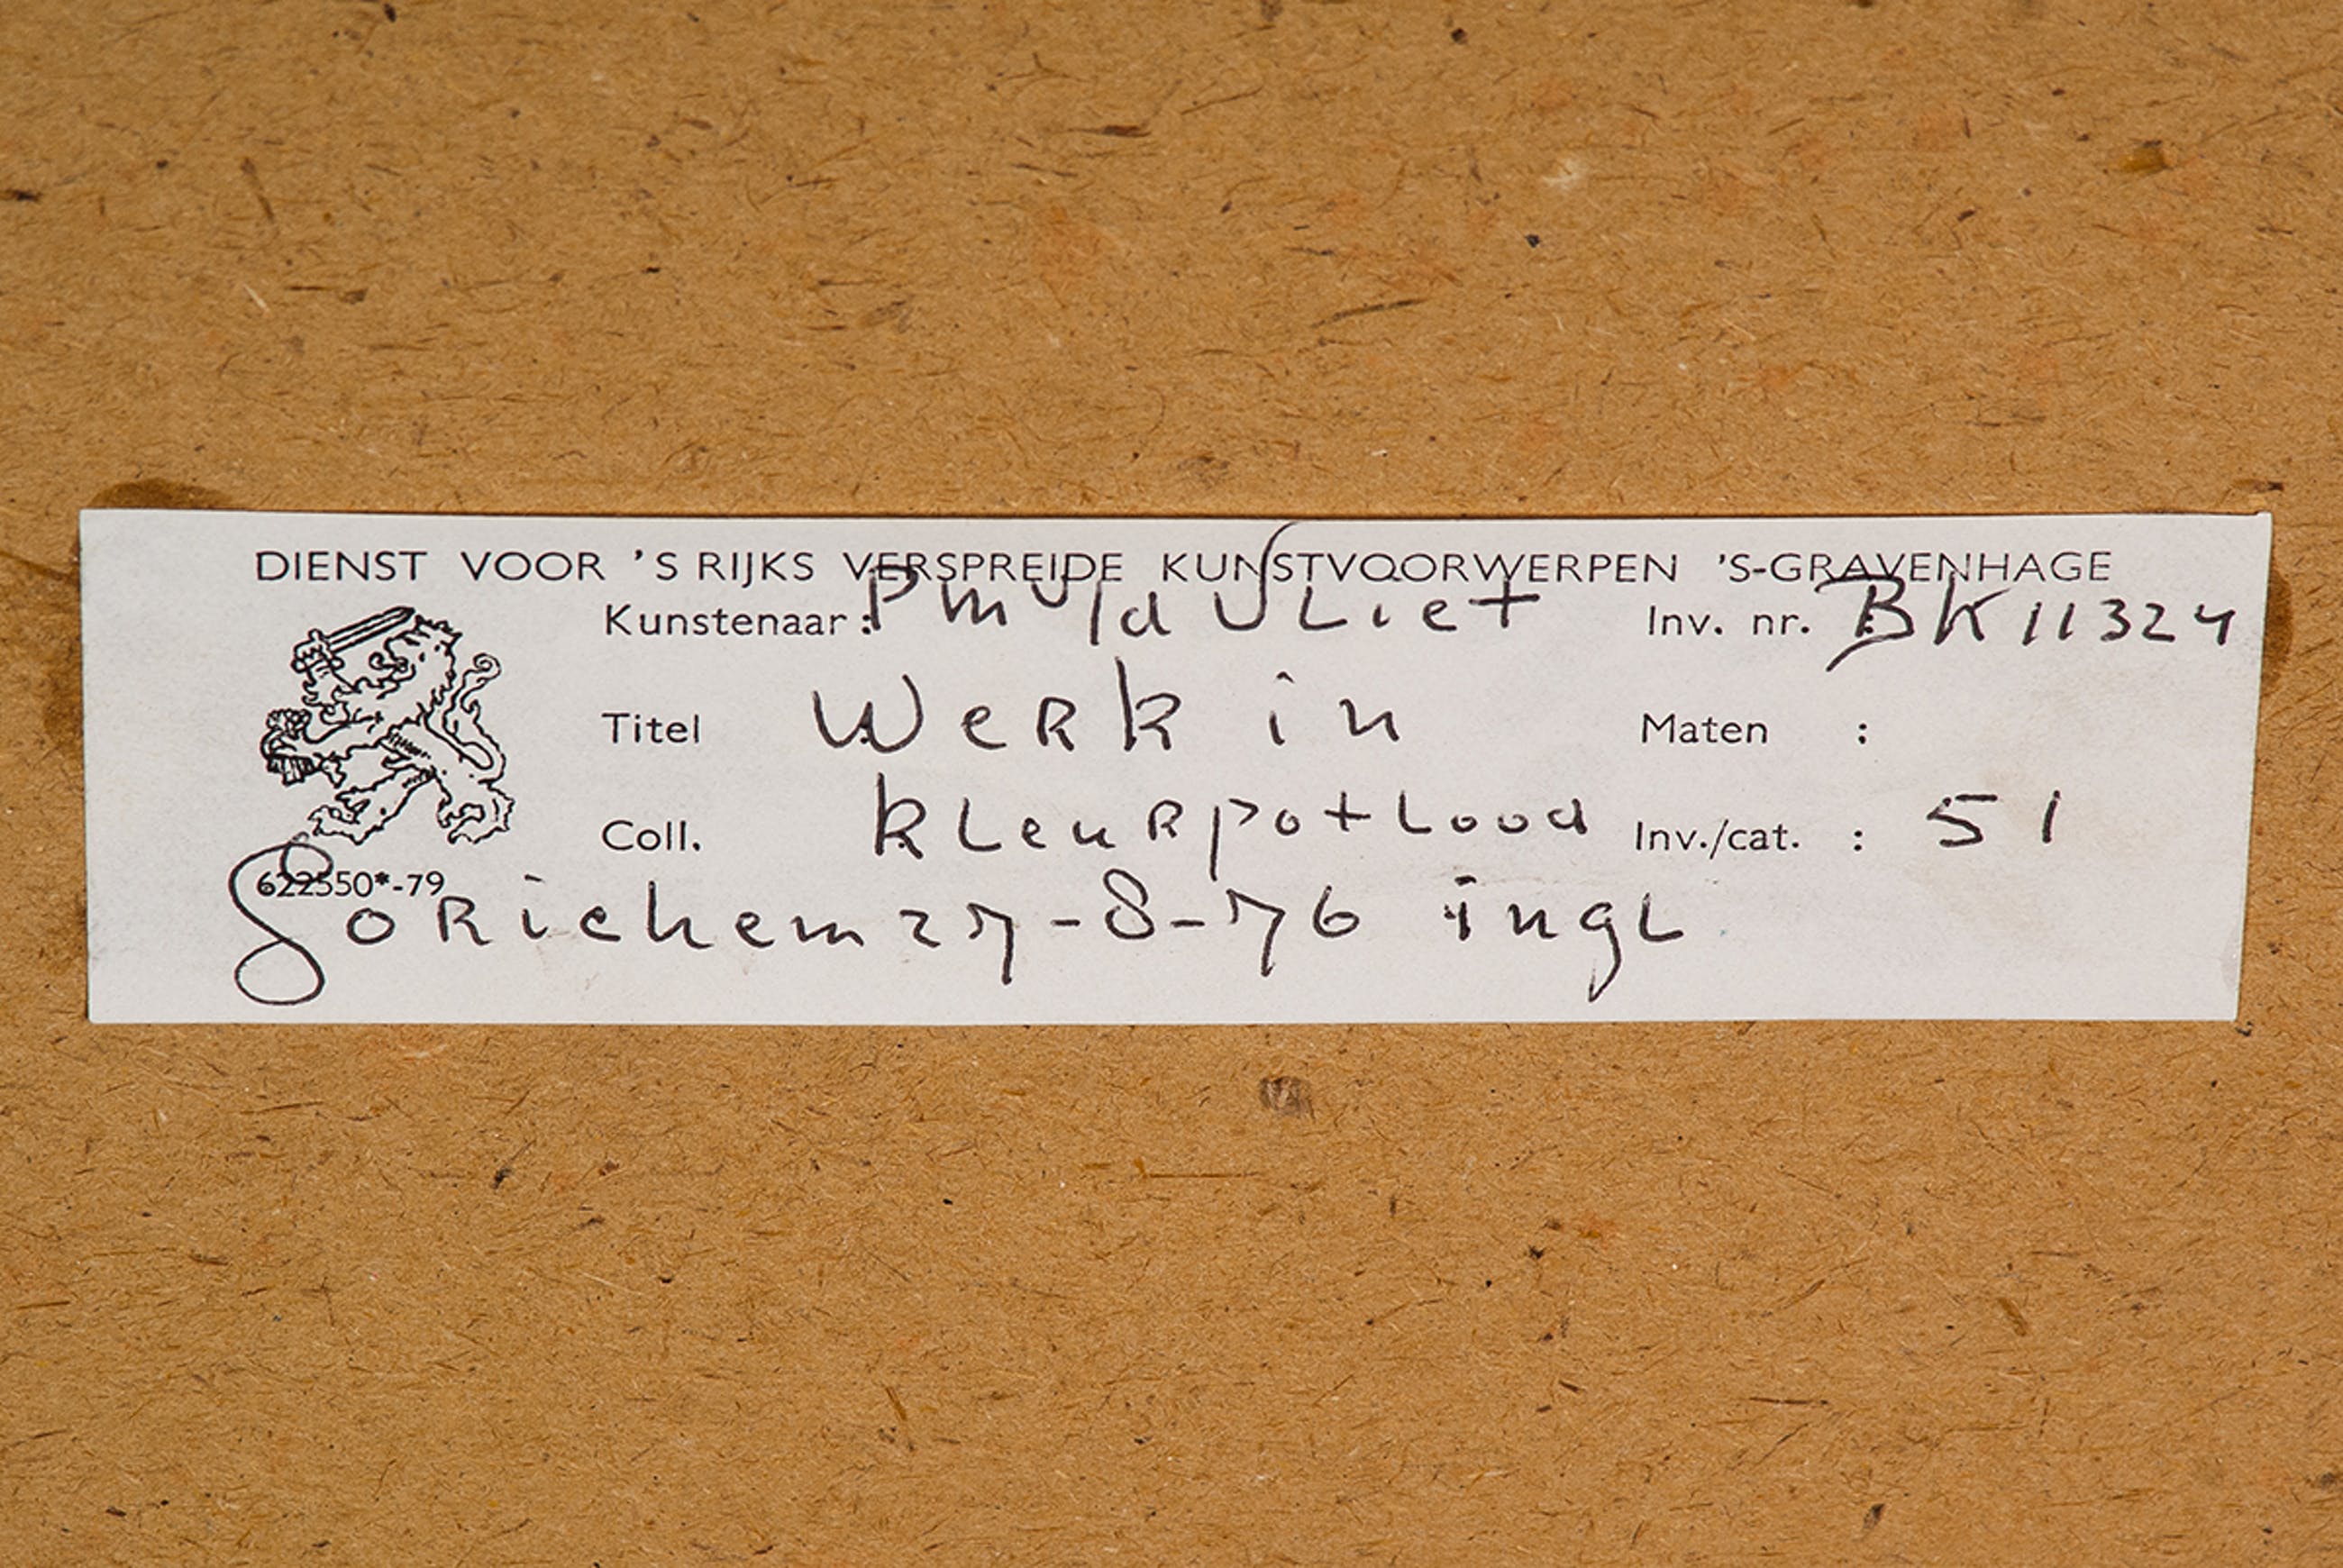 DIENST VOOR 'S RIJKS VERSPREIDE KUNSTVOORWERPEN 'S-GRAVENHAGE
Kunstenaar: P m v/d Vliet Inv. nr. : BK 11324
Titel : Werk in Maten :
Coll. : kleurpotlood Inv./cat. : 51
622550*-79
Gorichem 27-8-76 ingl